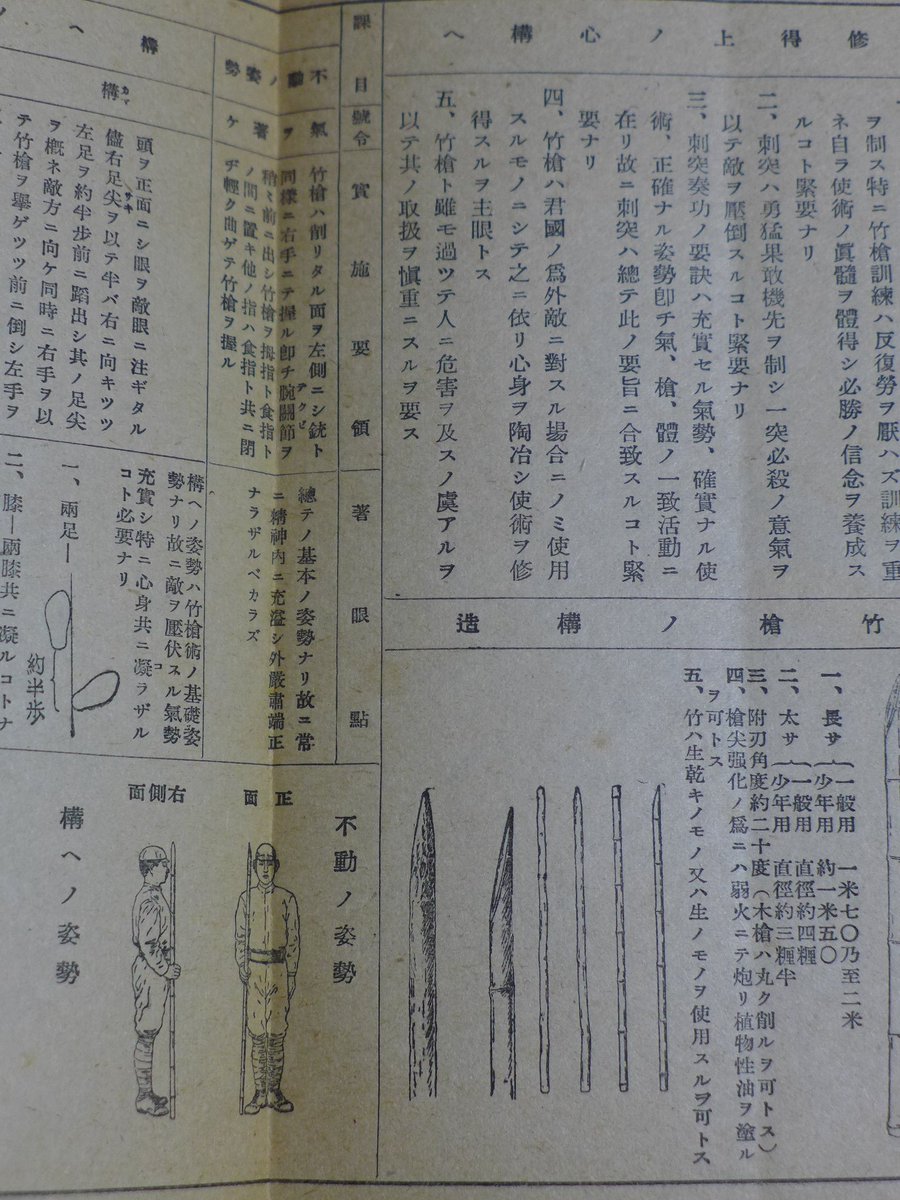 修得上ノ心構ヘ
ヲ制ス特ニ竹槍訓練ハ反復勞ヲ厭ハズ訓練ヲ重
ネ自ラ使術ノ眞髓ヲ體得シ必勝ノ信念ヲ養成ス
ルコト緊要ナリ
二、刺突ハ勇猛果敢機先ヲ制シ一突必殺ノ意氣ヲ
以テ敵ヲ壓倒スルコト緊要ナリ
三、刺突奏功ノ要訣ハ充實セル氣勢、確實ナル使
術、正確ナル姿勢卽チ氣、槍、體ノ一致活動ニ
在リ故ニ刺突ハ總テ此ノ要旨ニ合致スルコト緊
要ナリ
四、竹槍ハ君國ノ爲外敵ニ對スル場合ニノミ使用
スルモノニシテ之ニ依リ心身ヲ陶冶シ使術ヲ修
得スルヲ主眼トス
五、竹槍ト雖モ過ツテ人ニ危害ヲ及スノ虞アルヲ
以テ其ノ取扱ヲ愼重ニスルヲ要ス
竹槍ノ構造
一、長サ(一般用 一米七〇乃至二米
(少年用 約一米五〇
二、太サ(一般用 直徑約四糎
(少年用 直徑約三糎半
三、附刃角度約二十度(木槍ハ丸ク削ルヲ可トス)
四、槍尖强化ノ爲ニハ弱火ニテ炮リ植物性油ヲ塗ル
ヲ可トス
五、竹ハ生乾キノモノ又ハ生ノモノヲ使用スルヲ可トス
課目
號令
實施要領
著眼點
不動ノ姿勢
氣ヲ著ケ
竹槍ハ削リタル面ヲ左側ニシ銃ト
同樣ニ右手ニテ握ル卽チ腕關節ヲ
テクビ
稍々前ニ出シ竹槍ヲ拇指ト食指ト
ノ間ニ置キ他ノ指ハ食指ト共ニ閉
ヂ輕ク曲ゲテ竹槍ヲ握ル
總テノ基本ノ姿勢ナリ故ニ常
ニ精神內ニ充溢シ外嚴肅端正
ナラザルベカラズ
不動ノ姿勢
正面
右側面
構ヘノ
構
カマ
頭ヲ正面ニシ眼ヲ敵眼ニ注ギタル
儘右足尖ヲ以テ半バ右ニ向キツツ
サキ
左足ヲ約半步前ニ蹈出シ其ノ足尖
ヲ槪ネ敵方ニ向ケ同時ニ右手ヲ以
テ竹槍ヲ擧ゲツツ前ニ倒シ左手ヲ
構ヘノ姿勢ハ竹槍術ノ基礎姿
勢ナリ故ニ敵ヲ壓伏スル氣勢
充實シ特ニ心身共ニ凝ラザル
コ
コト必要ナリ
一、兩足—
約半步
二、膝—兩膝共ニ凝ルコトナ
構ヘノ姿勢